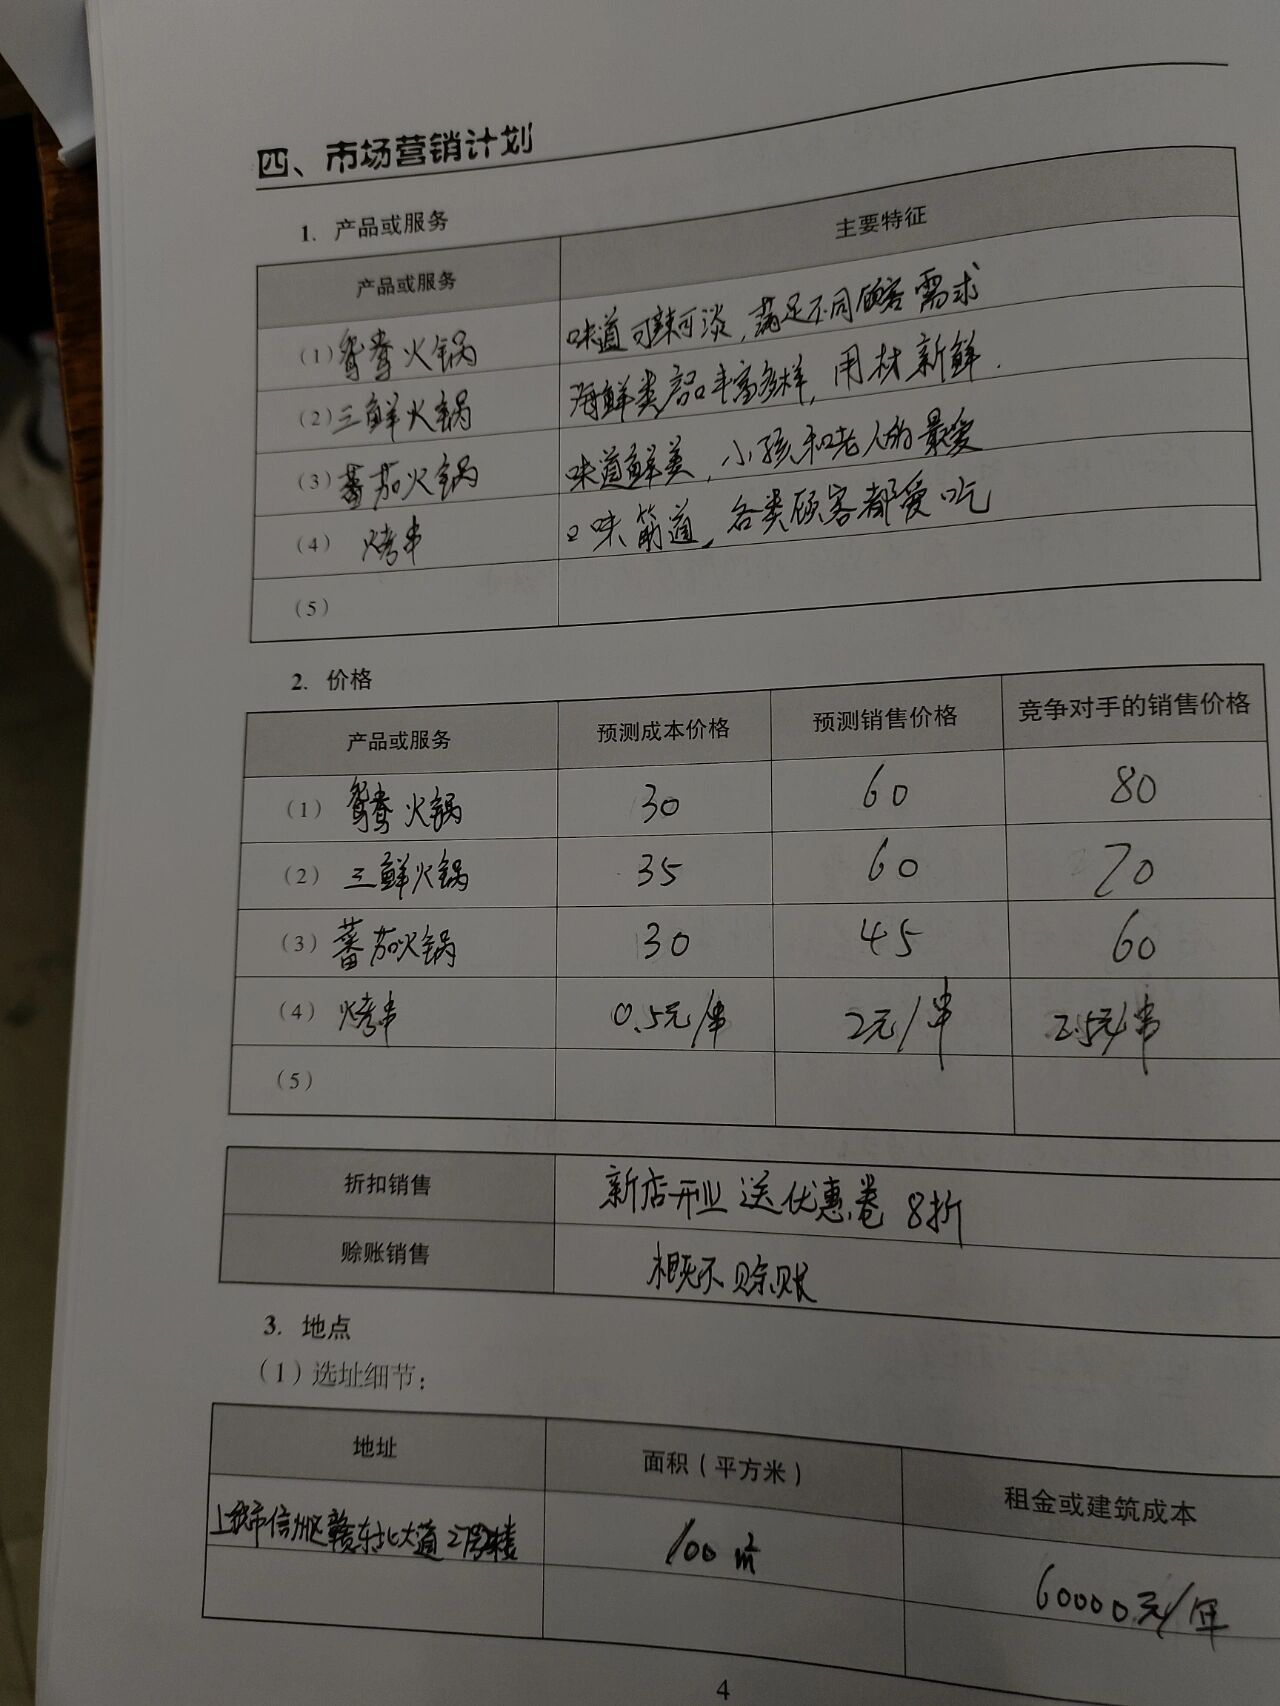 四、市场营销计划
1. 产品或服务
产品或服务 主要特征
(1)鸳鸯火锅 味道可辣可淡,满足不同顾客需求
(2)三鲜火锅 海鲜类品丰富多样,用材新鲜.
(3)蕃茄火锅 味道鲜美,小孩和老人的最爱
(4) 烤串 口味筋道,各类顾客都爱吃
(5)
2. 价格
产品或服务 预测成本价格 预测销售价格 竞争对手的销售价格
(1) 鸳鸯火锅 30 60 80
(2) 三鲜火锅 35 60 70
(3) 蕃茄火锅 30 45 60
(4) 烤串 0.5元/串 2元/串 2.5元/串
(5)
折扣销售 新店开业 送优惠卷 8折
赊账销售 概不赊账
3. 地点
(1)选址细节:
地址 面积(平方米) 租金或建筑成本
上饶市信州区赣东北大道 100㎡ 60000元/年
4